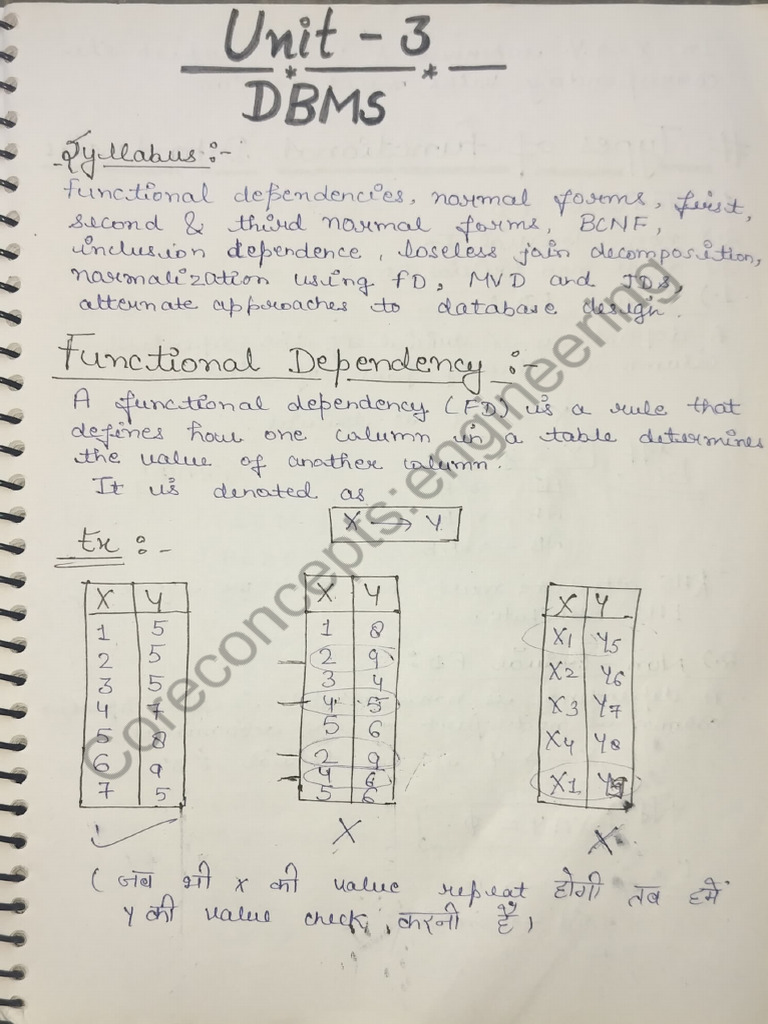 Unit - 3
DBMS
Syllabus :-
Functional dependencies, normal forms, first,
second & third normal forms, BCNF,
inclusion dependence, loseless join decomposition,
normalization using FD, MVD and JDs,
alternate approaches to database design.
Functional Dependency :-
A functional dependency (FD) is a rule that
defines how one column in a table determines
the value of another column.
It is denoted as
X → Y
Ex :-
X Y
1 5
2 5
3 5
4 7
5 8
6 9
7 5
X Y
1 8
2 9
3 4
4 5
5 6
2 9
4 6
5 6
X Y
X1 Y5
X2 Y6
X3 Y7
X4 Y8
X1
✓ X X
( जब भी X की value repeat होगी तब हमें
Y की value check करनी है )
coreconcepts:engineering